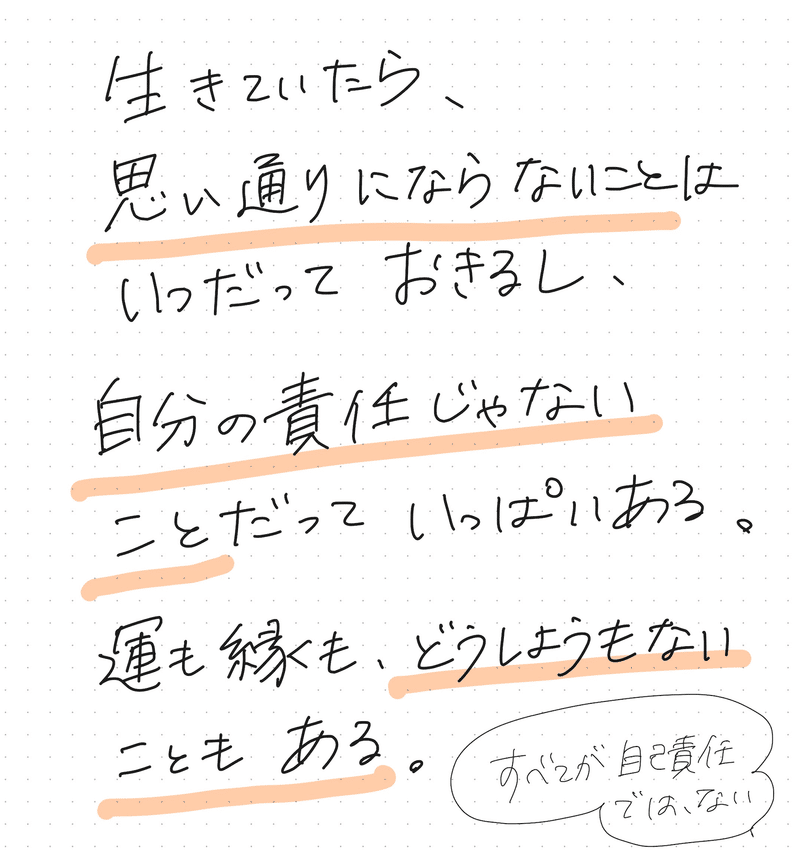 生きていたら、
思い通りにならないことは
いつだって おきるし、
自分の責任じゃない
ことだって いっぱいある。
運も縁くも、どうしようもない
ことも ある。
すべてが 自己責任
では、ない